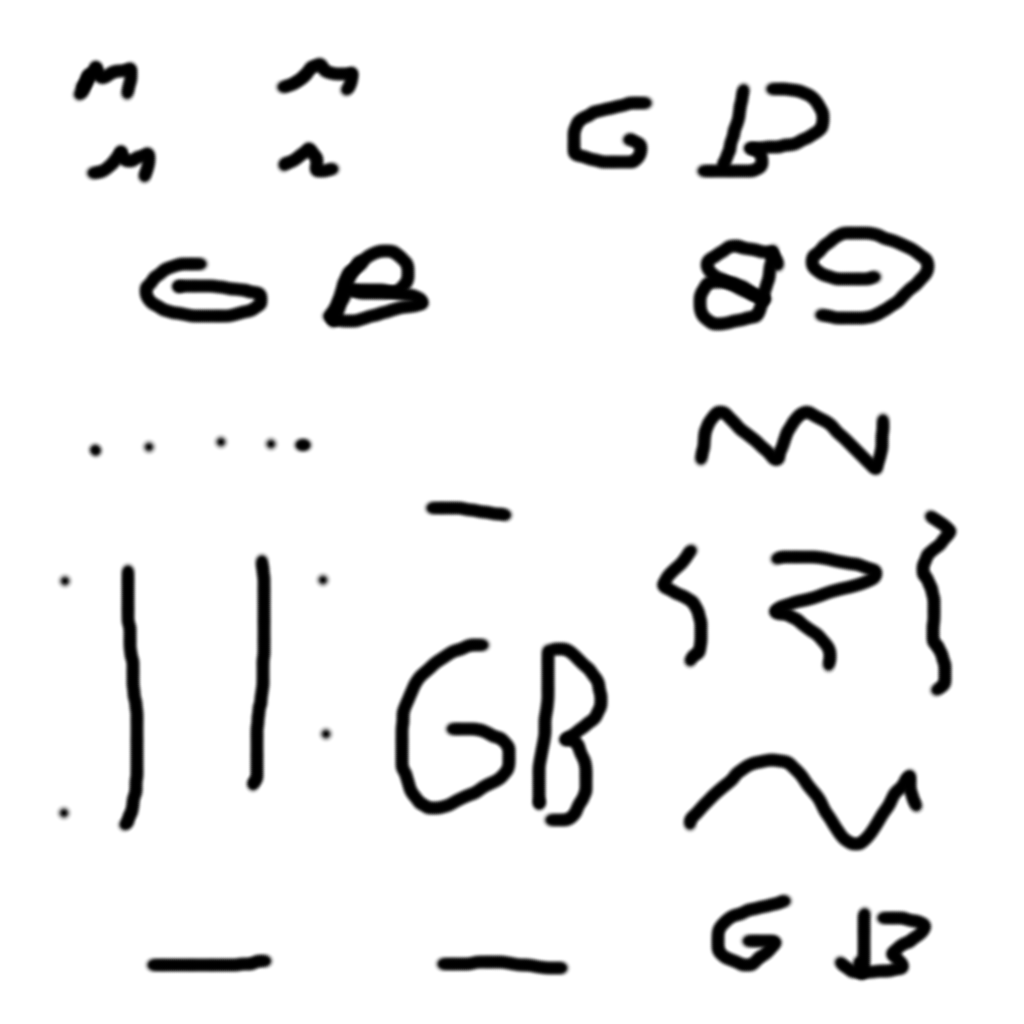 GB
GB
GB
GB